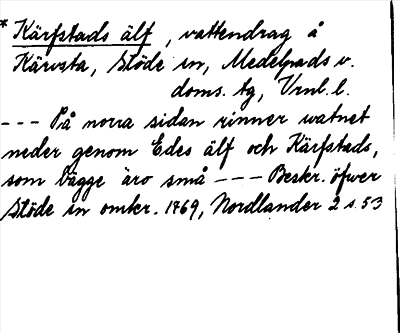 * Kärfstads älf, vattendrag å
Kärvsta, Stöde sn, Medelpads v.
doms. tg, Vrnl. l.
--- På norra sidan rinner watnet
neder genom Edes älf och Kärfstads,
som bägge äro små --- Beskr. öfwer
Stöde sn omkr. 1769, Nordlander 2 s. 53